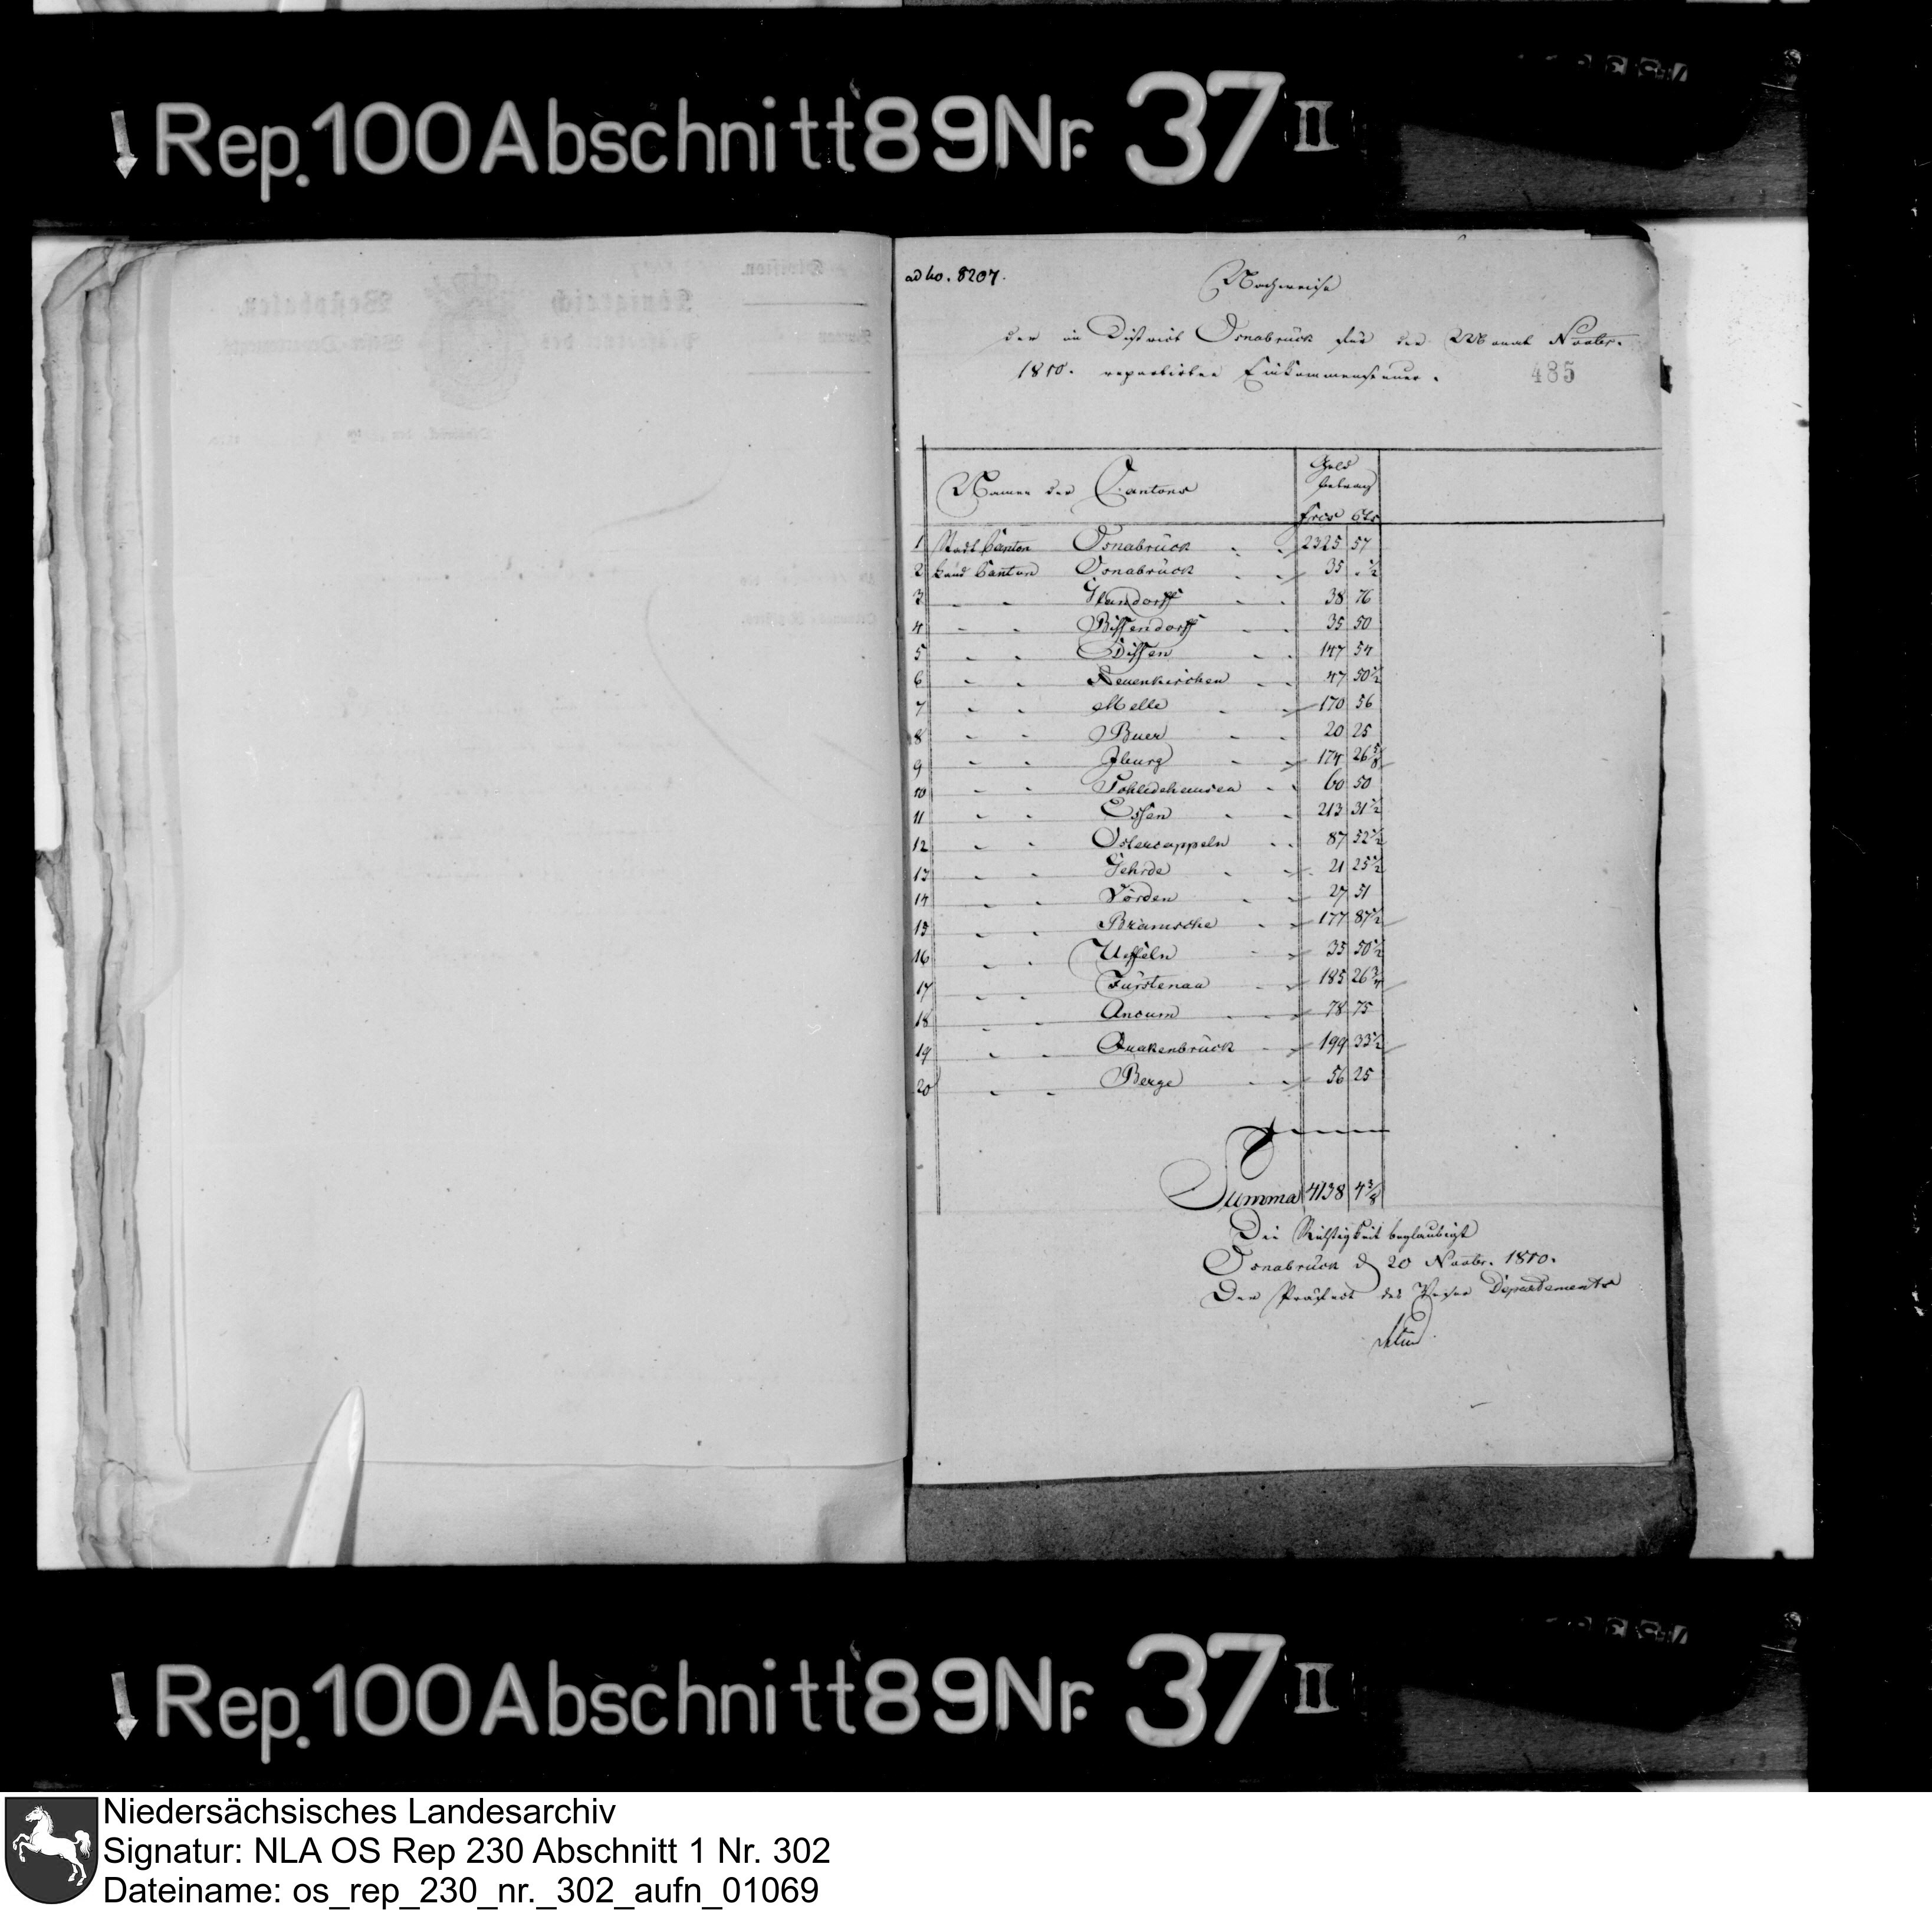 Rep. 100 Abschnitt 89 Nr. 37 II
ad No. 8207.
Nachweise
der im District Osnabrück für den Monat Novbr.
1810. repartirten Einkommensteuer.
485
Namen der Cantons
Geld
betrag
frcs Cts
1 Stadt Canton Osnabrück 2325 57
2 Land Canton Osnabrück 35 . ½
3 " " Glandorff 38 76
4 " " Bissendorff 35 50
5 " " Dissen 147 54
6 " " Neuenkirchen 47 50½
7 " " Melle 170 56
8 " " Buer 20 25
9 " " Iburg 174 26⅝
10 " " Schledehausen 60 50
11 " " Essen 213 31½
12 " " Ostercappeln 87 52½
13 " " Gehrde 21 25½
14 " " Vörden 27 51
15 " " Bramsche 177 87½
16 " " Uffeln 35 50½
17 " " Fürstenau 185 26¾
18 " " Ancum 78 75
19 " " Quakenbrück 199 33½
20 " " Berge 56 25
Summa 4138 4⅜
Die Richtigkeit beglaubigt
Osnabrück d 20 Novbr. 1810.
Der Präfect des Weser Departements
Rep. 100 Abschnitt 89 Nr. 37 II
Niedersächsisches Landesarchiv
Signatur: NLA OS Rep 230 Abschnitt 1 Nr. 302
Dateiname: os_rep_230_nr._302_aufn_01069